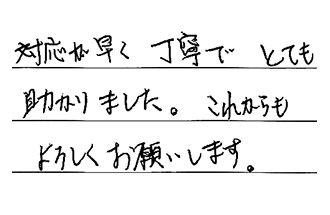 対応が早く 丁寧で とても
助かりました。これからも
よろしくお願いします。